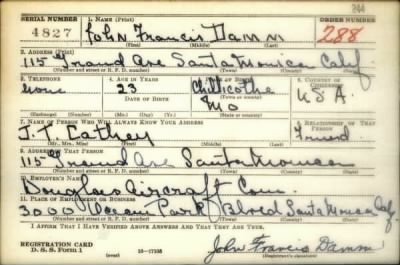 244
SERIAL NUMBER 1. NAME (Print) ORDER NUMBER
4827 John Francis Damm 288
(First) (Middle) (Last)
2. ADDRESS (Print)
115 Grand Ave Santa Monica Calif
(Number and street or R. F. D. number) (Town) (County) (State)
3. TELEPHONE 4. AGE IN YEARS 5. PLACE OF BIRTH 6. COUNTRY OF CITIZENSHIP
None 23 Chillicothe U.S.A.
DATE OF BIRTH (Town or county)
Mo
(Exchange) (Number) (Mo.) (Day) (Yr.) (State or country)
7. NAME OF PERSON WHO WILL ALWAYS KNOW YOUR ADDRESS 8. RELATIONSHIP OF THAT PERSON
J. T. Cathey Friend
(Mr., Mrs., Miss) (First) (Middle) (Last)
9. ADDRESS OF THAT PERSON
115 Grand Ave Santa Monica
(Number and street or R. F. D. number) (Town) (County) (State)
10. EMPLOYER'S NAME
Douglas Aircraft Com.
11. PLACE OF EMPLOYMENT OR BUSINESS
3000 Ocean Park Blvd Santa Monica Calif.
(Number and street or R. F. D. number) (Town) (County) (State)
I AFFIRM THAT I HAVE VERIFIED ABOVE ANSWERS AND THAT THEY ARE TRUE.
REGISTRATION CARD
D. S. S. Form 1 16-17105 John Francis Damm
(Registrant's signature)